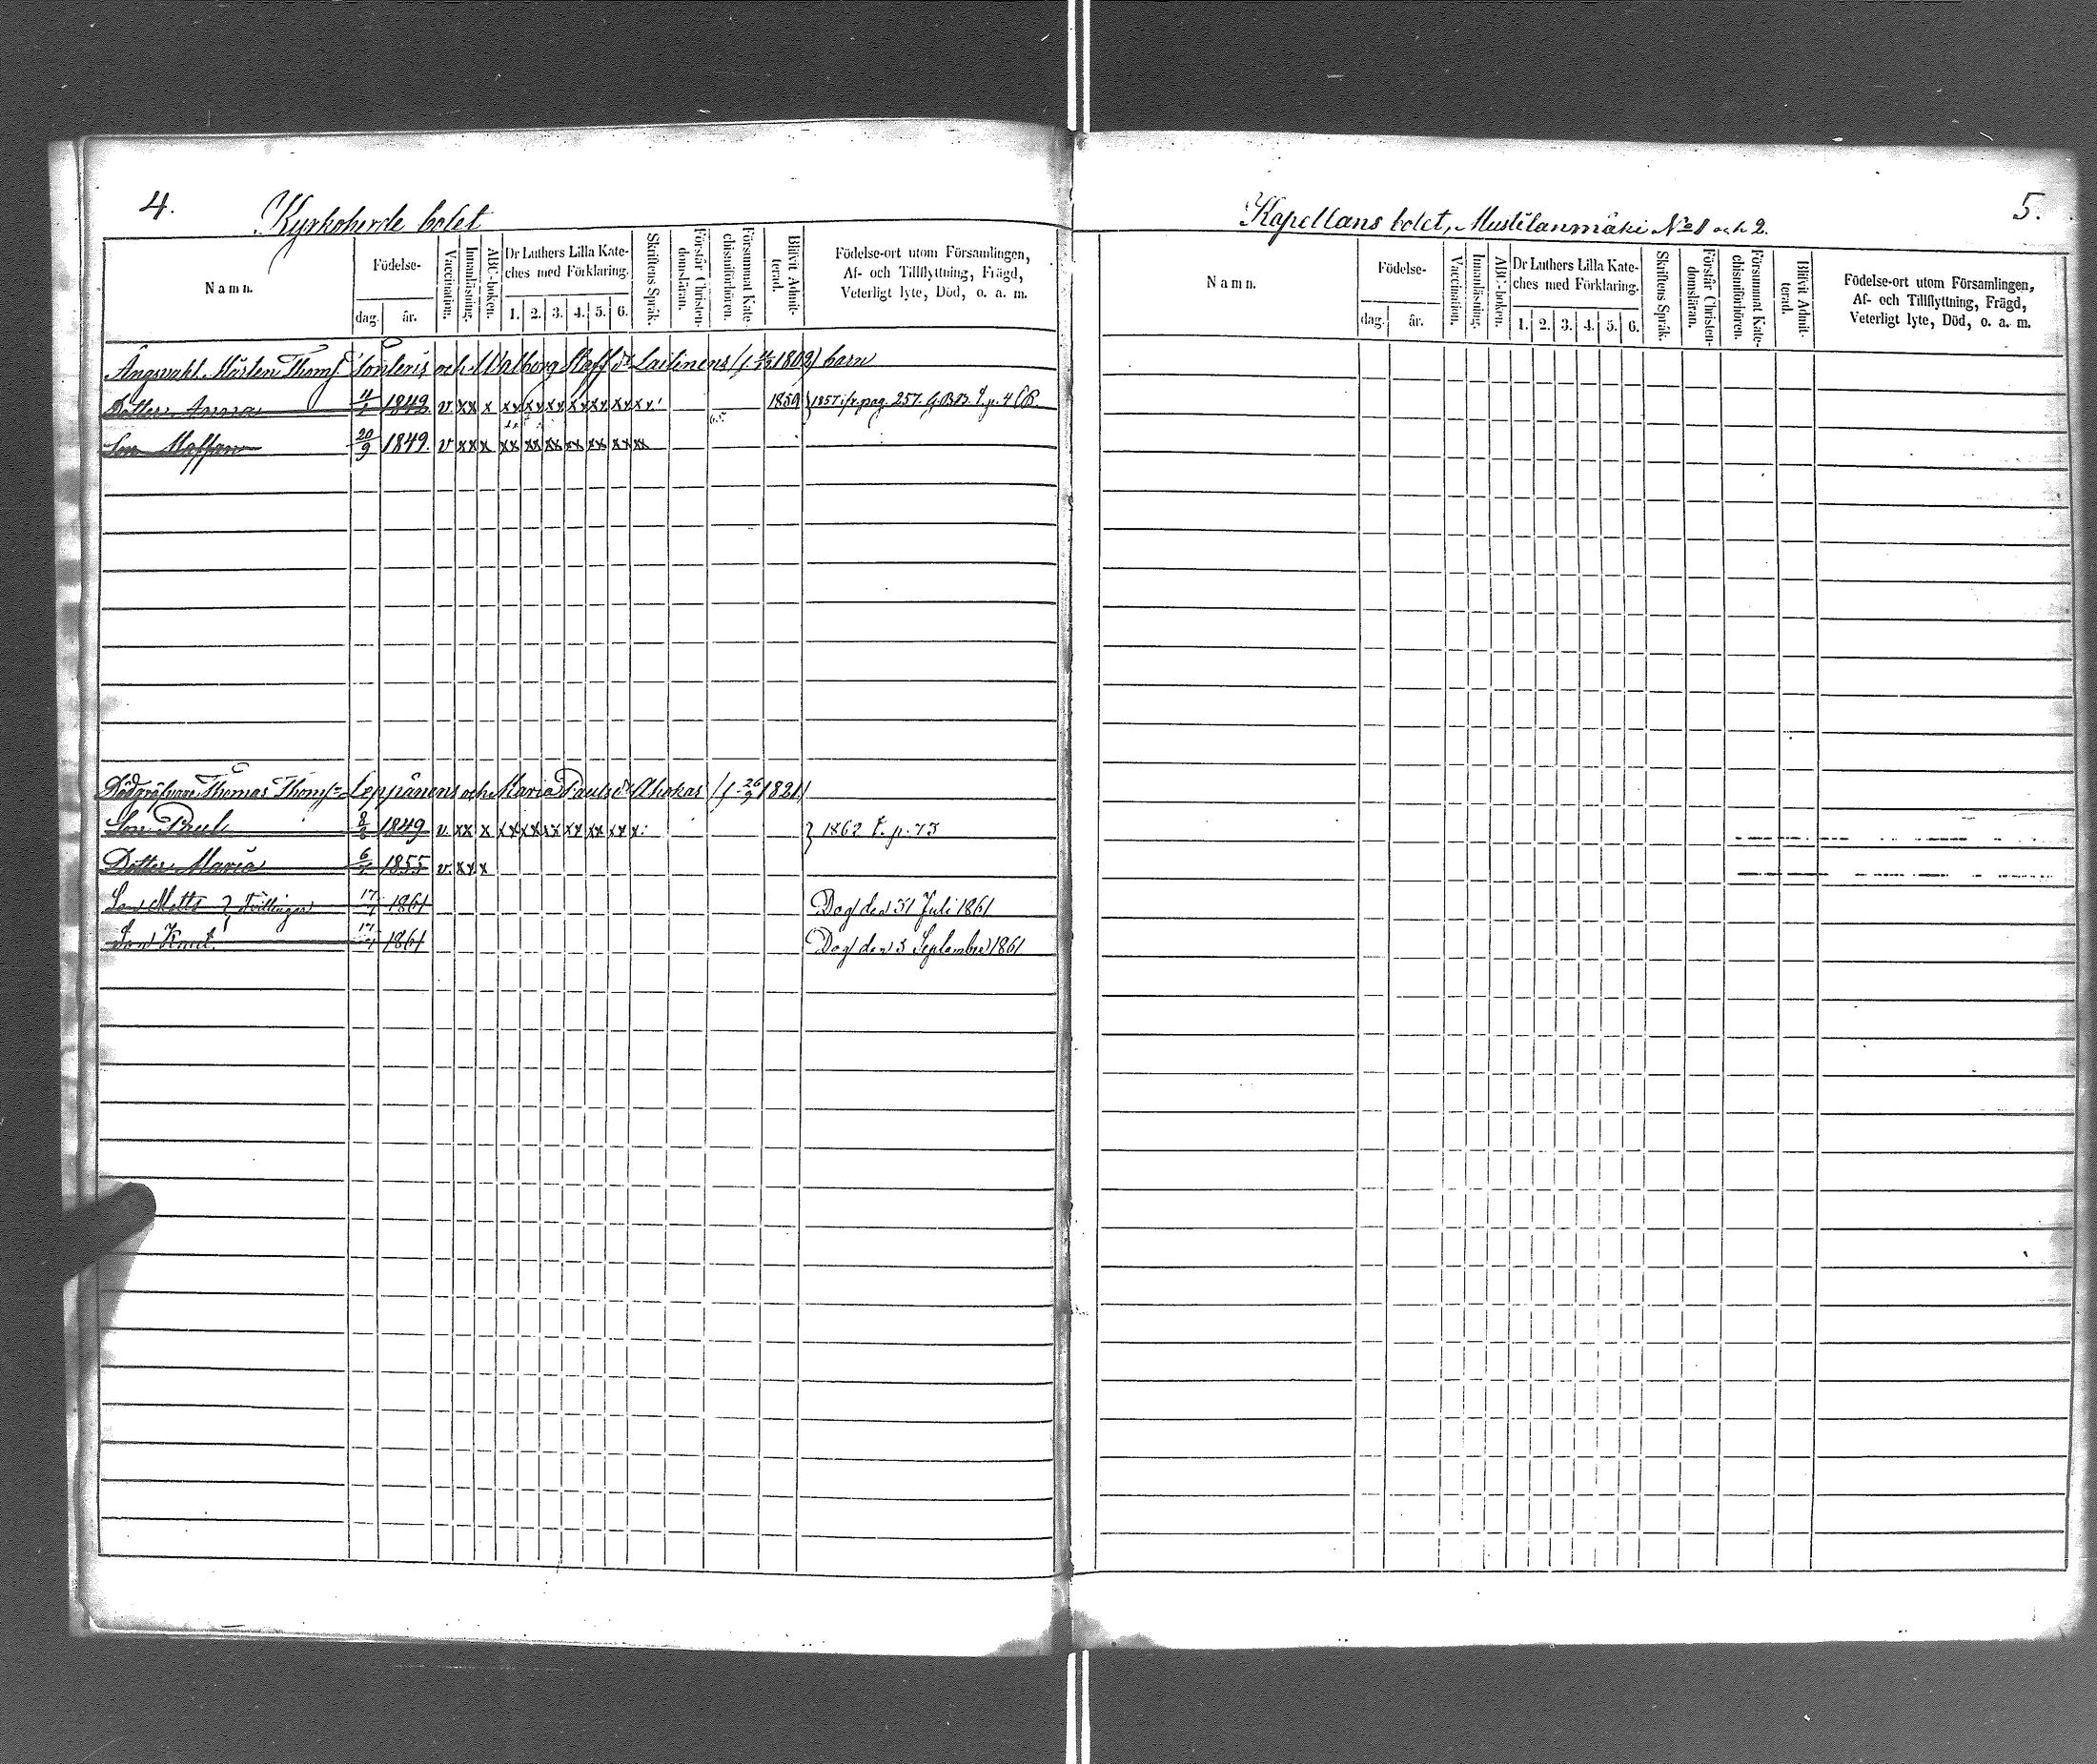 4.
Kyrkoherde bolet
Namn.
Födelse-
dag.
år.
Vaccination.
Innanläsning.
ABC-boken.
Dr Luthers Lilla Kate-
ches med Förklaring.
1. 2. 3. 4. 5. 6.
Skriftens Språk.
Förstår Christen-
domsläran.
Försummat Kate-
chismiförhören.
Blifvit Admit-
terad.
Födelse-ort utom Församlingen,
Af- och Tillflyttning, Frägd,
Veterligt lyte, Död, o. a. m.
Ängsvakt. Mårten Thoms Sonteris och Walborg Staffsdr Laitinens barn
Dotter Anna 1842 v xx x xx xx xx xx xx xx xx 1859 1857 pag. 257.
Son Staffan 20/9 1849. v xx x xx xx xx xx xx xx xx
Dödgräfvare Thomas Thoms Leppänens och Maria Paulsdr Ahokas (f. 26/9 1821)
Son Paul 1849 v xx x xx xx xx xx xx xx x 1862 p. 73
Dotter Maria 1855 v. xx x
Son Matts } Tvillingar 1861 Dog den 31 Juli 1861
Son Knut 1861 Dog den 3 September 1861
5.
Kapellans bolet, Mustilanmäki No 1 och 2.
Namn.
Födelse-
dag.
år.
Vaccination.
Innanläsning.
ABC-boken.
Dr Luthers Lilla Kate-
ches med Förklaring.
1. 2. 3. 4. 5. 6.
Skriftens Språk.
Förstår Christen-
domsläran.
Försummat Kate-
chismiförhören.
Blifvit Admit-
terad.
Födelse-ort utom Församlingen,
Af- och Tillflyttning, Frägd,
Veterligt lyte, Död, o. a. m.